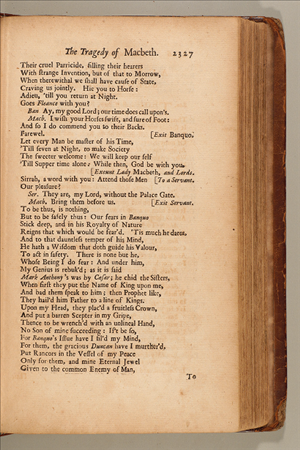 The Tragedy of Macbeth. 2327
Their cruel Parricide, filling their hearers
With strange Invention, but of that to Morrow,
When therewithal we shall have cause of State,
Craving us jointly. Hie you to Horse:
Adieu, 'till you return at Night.
Goes Fleance with you?
Ban. Ay, my good Lord; our time does call upon's.
Mach. I wish your Horses swift, and sure of Foot:
And so I do commend you to their Backs.
Farewel. [Exit Banquo.
Let every Man be master of his Time,
'Till seven at Night, to make Society
The sweeter welcome: We will keep our self
'Till Supper time alone: While then, God be with you.
[Exeunt Lady Macbeth, and Lords.
Sirrah, a word with you: Attend those Men [To a Servant.
Our pleasure?
Ser. They are, my Lord, without the Palace Gate.
Mach. Bring them before us. [Exit Servant.
To be thus, is nothing,
But to be safely thus: Our fears in Banquo
Stick deep, and in his Royalty of Nature
Reigns that which would be fear'd. 'Tis much he dares,
And to that dauntless temper of his Mind,
He hath a Wisdom that doth guide his Valour,
To act in safety. There is none but he,
Whose Being I do fear: And under him,
My Genius is rebuk'd; as it is said
Mark Anthony's was by Cæsar; he chid the Sisters,
When first they put the Name of King upon me,
And bad them speak to him; then Prophet like,
They hail'd him Father to a line of Kings.
Upon my Head, they plac'd a fruitless Crown,
And put a barren Scepter in my Gripe,
Thence to be wrench'd with an unlineal Hand,
No Son of mine succeeding: If't be so,
For Banquo's Issue have I fil'd my Mind,
For them, the gracious Duncan have I murther'd,
Put Rancors in the Vessel of my Peace
Only for them, and mine Eternal Jewel
Given to the common Enemy of Man,
To